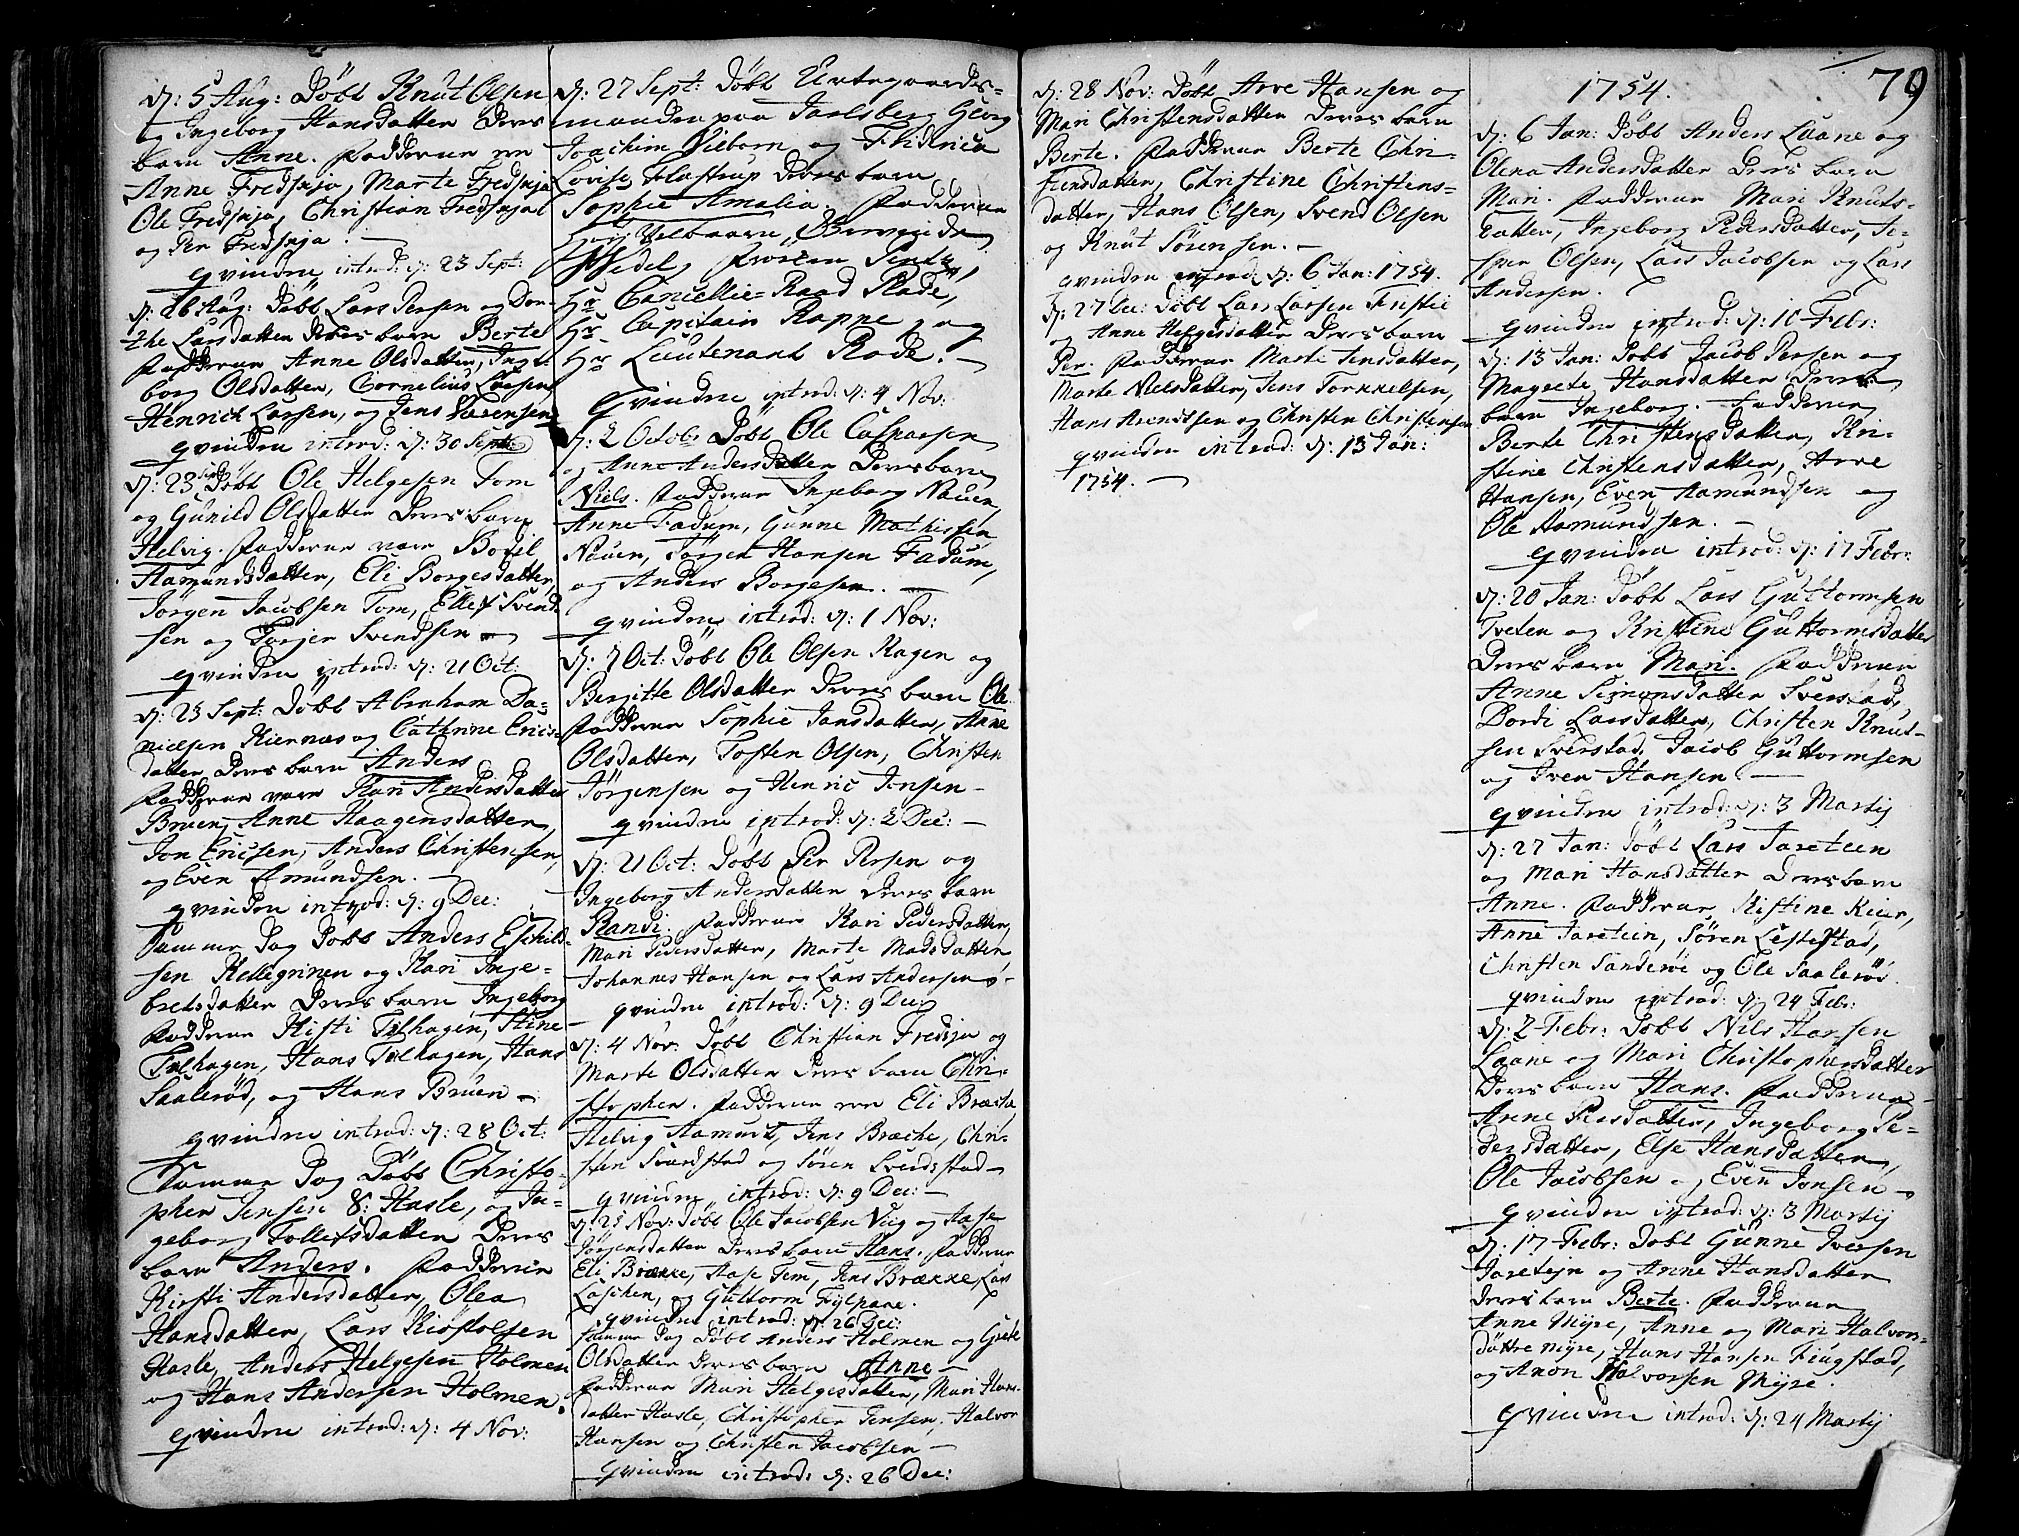 d: 5 Aug: Döbt Knut Olsen
og Ingeborg Hansdatter Deres
barn Anne. Fadderne ere
Anne Fredsøja, Marte Fredsøja
Ole Fredsøja, Christian Fredsøja
og Per Fredsøja.
qvinden introd: d: 23 Sept:
d: 26 Aug: Döbt Lars Persen og Dor-
the Larsdatter Deres barn Berte
Fadderne Anne Olsdatter, Inge-
borg Olsdatter, Cornelius Larsen
Henrich Larsen, og Jens Sørensen
qvinden introd: d: 30 Sept:
d: 23 Sept: Döbt Ole Helgesen Tom
og Gunild Olsdatter Deres barn
Helvig. Fadderne vare Bodil
Aamundsdatter, Eli Borgesdatter,
Jörgen Jacobsen Tom, Ellef Svend-
sen og Torjer Svendsen
qvinden introd: d: 21 Oct:
d: 23 Sept: Döbt Abraham Da-
nielsen Kiernæs og Cathrine Erics-
datter Deres barn Anders
Fadderne vare Kari Andersdatter
Bruen, Anne Haagensdatter,
Jon Ericsen, Anders Christensen,
og Even Amundsen.
qvinden introd: d: 9 Dec:
Samme Dag Döbt Anders Eschild-
sen Kellegrinen og Kari Inge-
bretsdatter Deres barn Ingeborg
Fadderne Kisti Tulhagen, Stine
Tulhagen, Hans Tulhagen, Hans
Saaleröd, og Hans Bruen
qvinden introd: d: 28 Oct:
Samme Dag Döbt Christo-
pher Jensen Hasle, og In-
geborg Tollefsdatter Deres
barn Anders. Fadderne
Kirsti Andersdatter, Olea
Hansdatter, Lars Kiöstolsen
Hasle, Anders Helgesen Holmen
og Hans Andersen Holmen.
qvinden introd: d: 4 Nov:
d: 27 Sept: Döbt Urtegaards-
manden paa Jarlsberg Georg
Joachim Vieborn og Friderica
Lovise Flastrup Deres barn
Sophie Amalia. Fadderne

Hr Cancellie-Raad Rode,
Hr Capitain Rappe, og
Hr Lieutenant Rode.
qvinden introd: d: 4 Nov:
d: 2 Octob: Döbt Ole Casparsen
og Anne Andersdatter Deres barn
Niels. Fadderne Ingeborg Nauen
Anne Fadum, Gunne Mathissen
Nauen, Jörgen Hansen Fadum,
og Anders Borgesen.
qvinden introd: d: 1 Nov:
d: 7 Oct: Döbt Ole Olsen Hagen og
Birgitte Olsdatter Deres barn Ole
Fadderne Sophie Jansdatter, Anne
Olsdatter, Tosten Olsen, Christen
Jörgensen og Henric Jonsen
qvinden introd: d: 2 Dec:
d: 21 Oct: Döbt Per Persen og
Ingeborg Andersdatter Deres barn
Randi. Fadderne Kari Pedersdatter,
Mari Pedersdatter, Marte Madsdatter
Johannes Hansen og Lars Andersen
qvinden introd: d: 9 Dec:
d: 4 Nov: Döbt Christian Fredsøja og
Marte Olsdatter Deres barn Chri-
stopher. Fadderne ere Eli Bræche,
Helvig Aamunt, Jens Bræche, Chri-
sten Svendstad og Sören Svendstad
qvinden introd: d: 9 Dec:
d: 25 Nov: Döbt Ole Jacobsen Vug og Aase
Jörgensdatter Deres barn Hans. Fadderne
Eli Brække, Aase Tem, Jens Brække, Lars
Laschen, og Guttorm Fylpane.
qvinden introd: d: 26 Dec:
Samme Dag Döbt Anders Holmen og Grete
Olsdatter Deres barn Anne
Fadderne Mari Helgesdatter, Mari Hans-
datter Hasle, Christopher Jensen, Halvor
Hansen og Christen Jacobsen
qvinden introd: d: 26 Dec:
d: 28 Nov: Döbt Arve Hansen og
Mari Christensdatter Deres barn
Berte. Fadderne Berte Chri-
stensdatter, Christine Christens-
datter, Hans Olsen, Svend Olsen
og Knut Sörensen.
qvinden introd: d: 6 Jan: 1754.
d: 27 Dec: Döbt Lars Larsen Fristie
og Anne Helgesdatter Deres barn
Per. Fadderne Marte Jensdatter,
Marte Nielsdatter, Jens Torkkelsen,
Hans Arentsen og Christen Christensen
qvinden introd: d: 13 Jan:
1754.
79
1754.
d: 6 Jan: Döbt Anders Laane og
Olena Andersdatter Deres barn
Mari. Fadderne Mari Knuts-
datter, Ingeborg Pedersdatter, Je-
sper Olsen, Lars Jacobsen og Lars
Andersen.
qvinden introd: d: 10 Febr:
d: 13 Jan: Döbt Jacob Persen og
Magrete Hansdatter Deres
barn Ingeborg. Fadderne
Berte Christensdatter, Kri-
stine Christensdatter, Arve
Hansen, Even Aamundsen og
Ole Aamundsen.
qvinden introd: d: 17 Febr:
d: 20 Jan: Döbt Lars Guttormsen
Tveten og Kristine Guttormsdatter
Deres barn Mari. Fadderne
Anne Simonsdatter Sverstad,
Dordi Larsdatter, Christen Knud-
sen Sverstad, Jacob Guttormsen
og Iver Hansen
qvinden introd: d: 3 Martij
d: 27 Jan: Döbt Lars Jareteen
og Mari Hansdatter Deres barn
Anne. Fadderne Kistine Keier,
Anne Jareteen, Sören Lestestad,
Christen Sanderöe og Ole Saaleröd.
qvinden introd: d: 24 Febr:
d: 2 Febr: Döbt Nils Hansen
Laane og Mari Christophersdatter
Deres barn Hans. Fadderne
Anne Persdatter, Ingeborg Pe-
dersdatter, Else Hansdatter,
Ole Jacobsen og Even Jonsen
qvinden introd: d: 3 Martij
d: 17 Febr: Döbt Gunne Iversen
Jaretejn og Anne Hansdatter
Deres barn Berte. Fadderne
Anne Myre, Anne og Mari Halvors-
döttre Myre, Hans Hansen Fiugstad,
og Aron Halvorsen Myre.
qvinden introd: d: 24 Martij